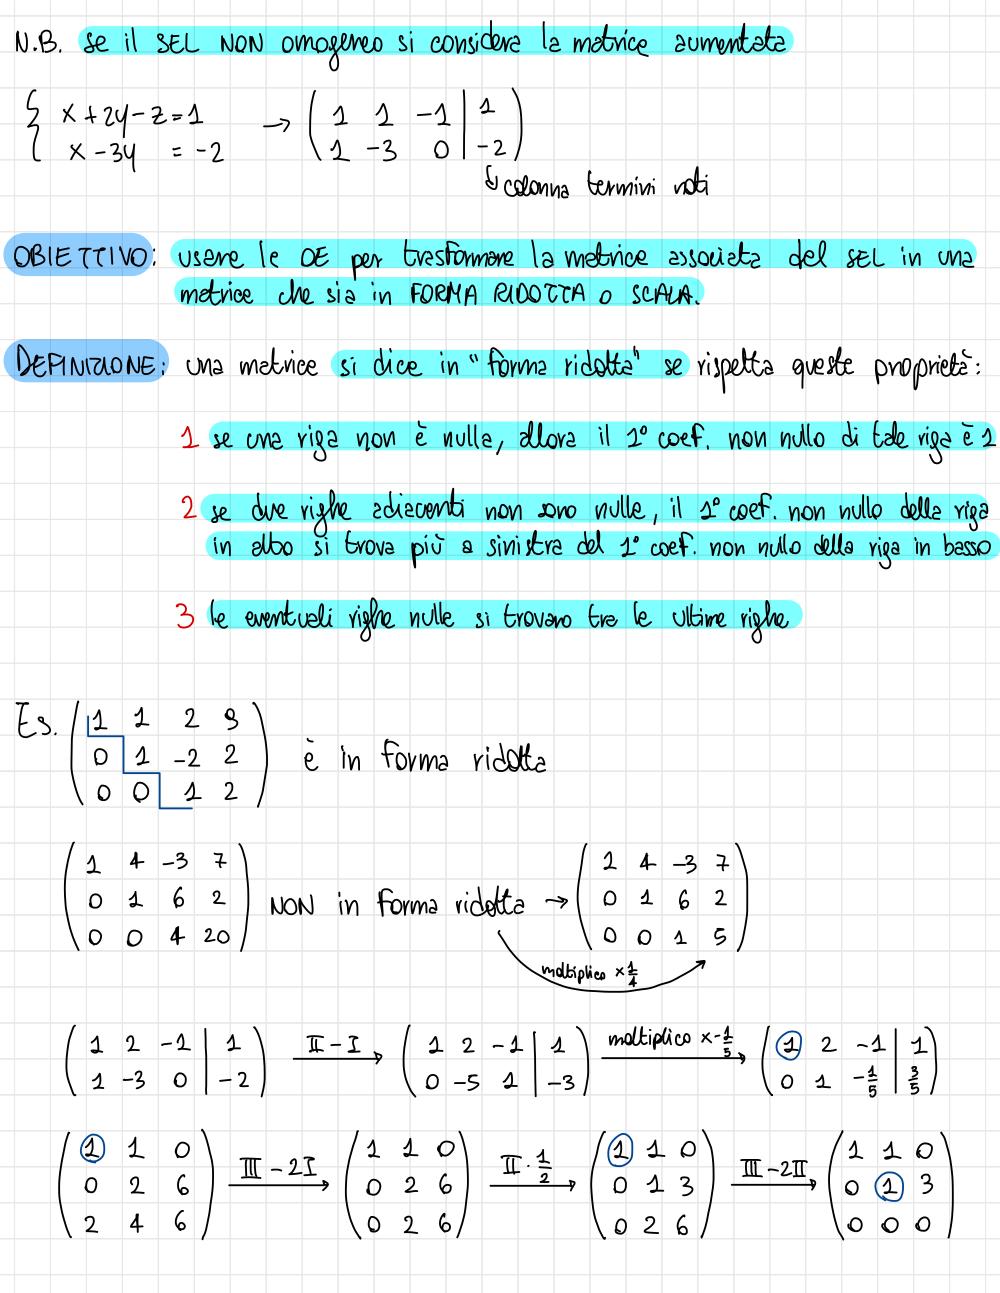 N.B. se il SEL NON omogeneo si considera la matrice aumentata
{ x + 2y - z = 1 → ( 1 1 -1 | 1 )
x - 3y = -2 ( 1 -3 0 | -2 )
↳ colonna termini noti
OBIETTIVO: usare le OE per trasformare la matrice associata del SEL in una
matrice che sia in FORMA RIDOTTA O SCALA.
DEFINIZIONE: una matrice si dice in "forma ridotta" se rispetta queste proprietà:
1 se una riga non è nulla, allora il 1° coef. non nullo di tale riga è 1
2 se due righe adiacenti non sono nulle, il 1° coef. non nullo della riga
in alto si trova più a sinistra del 1° coef. non nullo della riga in basso
3 le eventuali righe nulle si trovano tra le ultime righe
Es. ( 1 1 2 9 )
( 0 1 -2 2 ) è in forma ridotta
( 0 0 1 2 )
( 1 4 -3 7 ) ( 1 4 -3 7 )
( 0 1 6 2 ) NON in forma ridotta → ( 0 1 6 2 )
( 0 0 4 20 ) ( 0 0 1 5 )
moltiplico × 1/4
( 1 2 -1 | 1 ) II - I → ( 1 2 -1 | 1 ) moltiplico × -1/5 → ( 1 2 -1 | 1 )
( 1 -3 0 | -2 ) ( 0 -5 1 | -3 ) ( 0 1 -1/5 | 3/5 )
( 1 1 0 ) ( 1 1 0 ) ( 1 1 0 ) ( 1 1 0 )
( 0 2 6 ) III - 2I → ( 0 2 6 ) II · 1/2 → ( 0 1 3 ) III - 2II → ( 0 1 3 )
( 2 4 6 ) ( 0 2 6 ) ( 0 2 6 ) ( 0 0 0 )